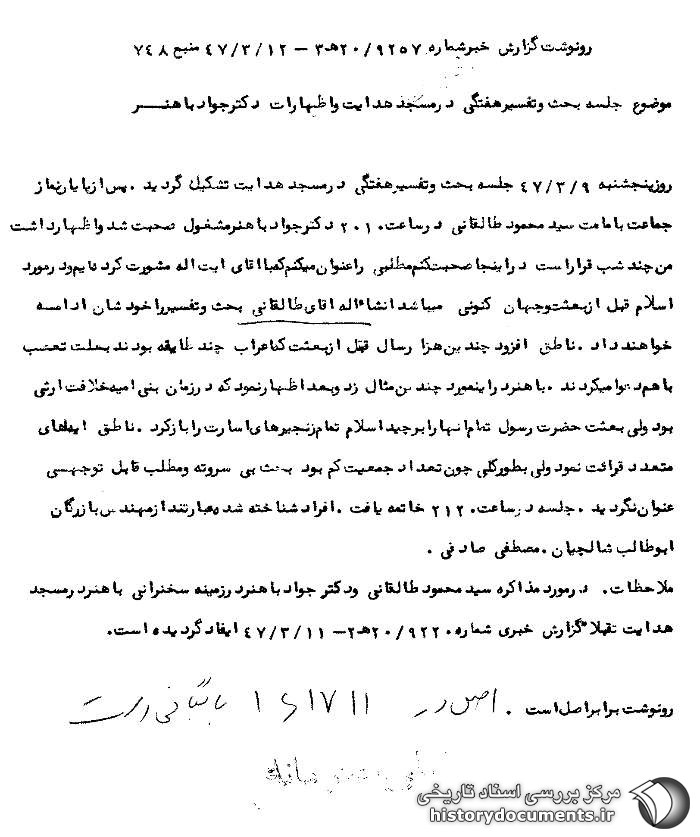 رونوشت گزارش خبر شماره ۲۰/۹۲۵۷ ه‍ ۳ – ۴۷/۳/۱۲ منبع ۷۴۸
موضوع جلسه بحث و تفسیر هفتگی در مسجد هدایت و اظهارات دکتر جواد باهنر
روز پنجشنبه ۴۷/۳/۹ جلسه بحث و تفسیر هفتگی در مسجد هدایت تشکیل گردید . پس از پایان نماز
جماعت با مامت سید محمود طالقانی در ساعت ۲۰۱۰ دکتر جواد باهنر مشغول صحبت شد و اظهار داشت
من چند شب قرار است در اینجا صحبت کنم مطلبی را عنوان میکنم که با اقای ایت اله مشورت کرده ایم و در مورد
اسلام قبل از بعثت و جهان کنونی میباشد انشاءاله اقای طالقانی بحث و تفسیر را خودشان ادامه
خواهند داد . ناطق افزود چندین هزار سال قبل از بعثت که اعراب چند طایفه بودند بعلت تعصب
با هم دعوا میکردند . باهنر در اینمورد چندین مثال زد و بعد اظهار نمود که در زمان بنی امیه خلافت ارثی
بود ولی بعثت حضرت رسول تمام انها را برچید اسلام تمام زنجیرهای اسارت را باز کرد . ناطق ایه های
متعدد قرائت نمود ولی بطور کلی چون تعداد جمعیت کم بود بحث بی سروته و مطلب قابل توجهی
عنوان نگردید . جلسه در ساعت ۲۱۲۰ خاتمه یافت . افراد شناخته شده عبارتند از مهندس بازرگان
ابوطالب شالچیان . مصطفی صادقی .
ملاحظات . در مورد مذاکره سید محمود طالقانی و دکتر جواد باهنر در زمینه سخنرانی باهنر در مسجد
هدایت قبلا گزارش خبری شماره ۲۰/۹۲۲۰ ه‍ ۲ – ۴۷/۳/۱۱ ایفاد گردیده است .
رونوشت برابر اصل است . اصل در بایگانی است
مرکز بررسی اسناد تاریخی
historydocuments.ir